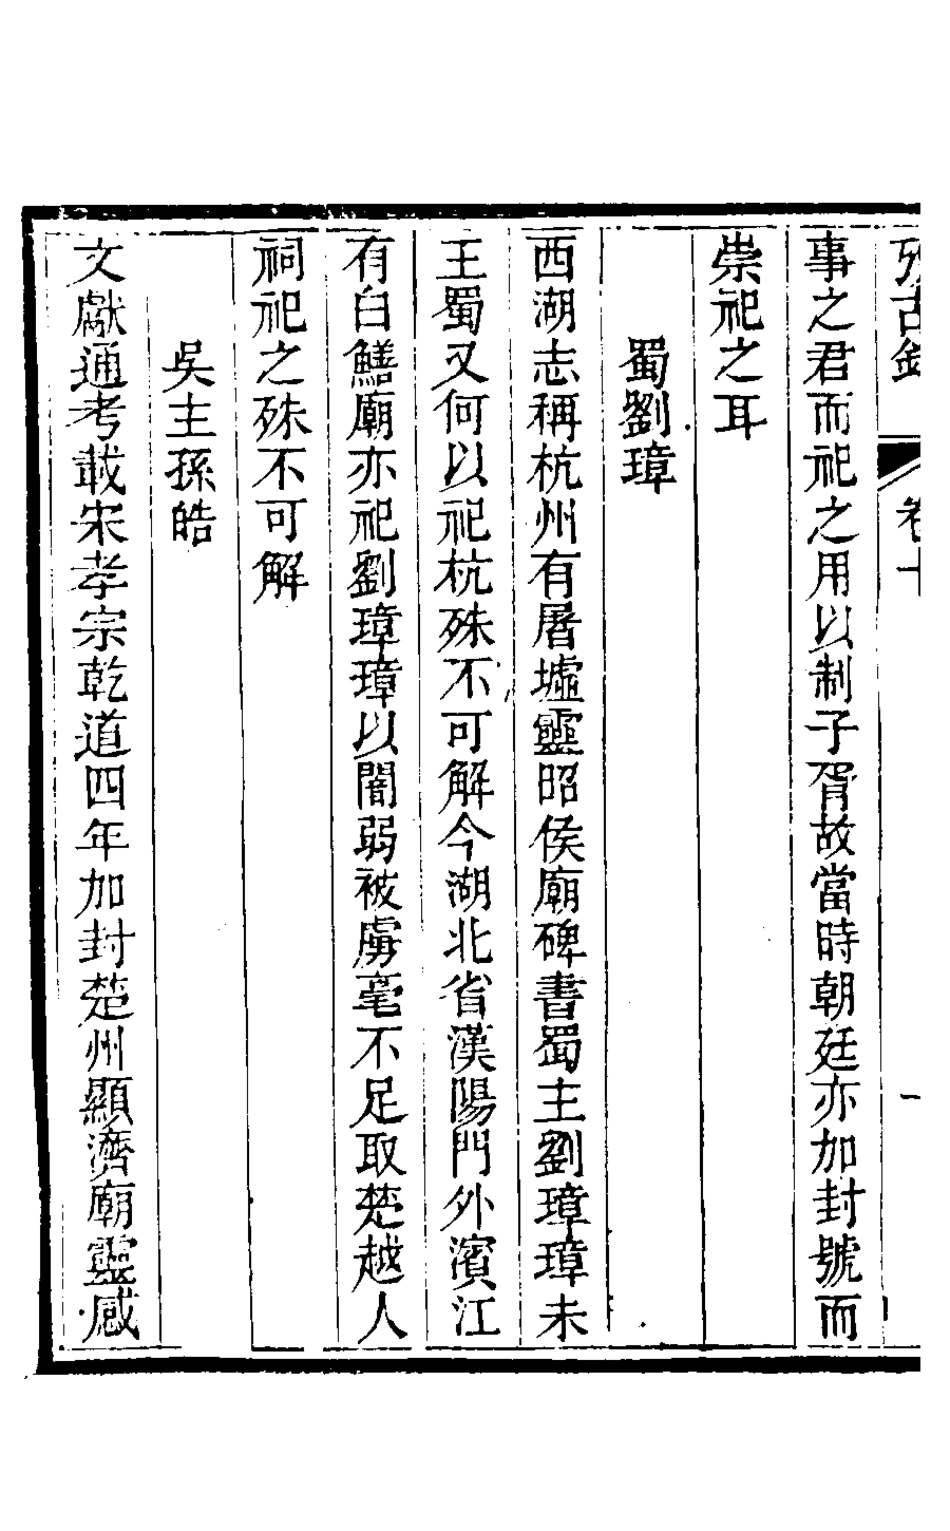 攷古錄 卷十 一
事之君而祀之用以制子胥故當時朝廷亦加封號而
崇祀之耳
蜀劉璋
西湖志稱杭州有屠墟靈昭侯廟碑書蜀主劉璋璋未
王蜀又何以祀杭殊不可解今湖北省漢陽門外濱江
有白鱔廟亦祀劉璋璋以闇弱被虜毫不足取楚越人
祠祀之殊不可解
吳主孫皓
文獻通考載宋孝宗乾道四年加封楚州顯濟廟靈感